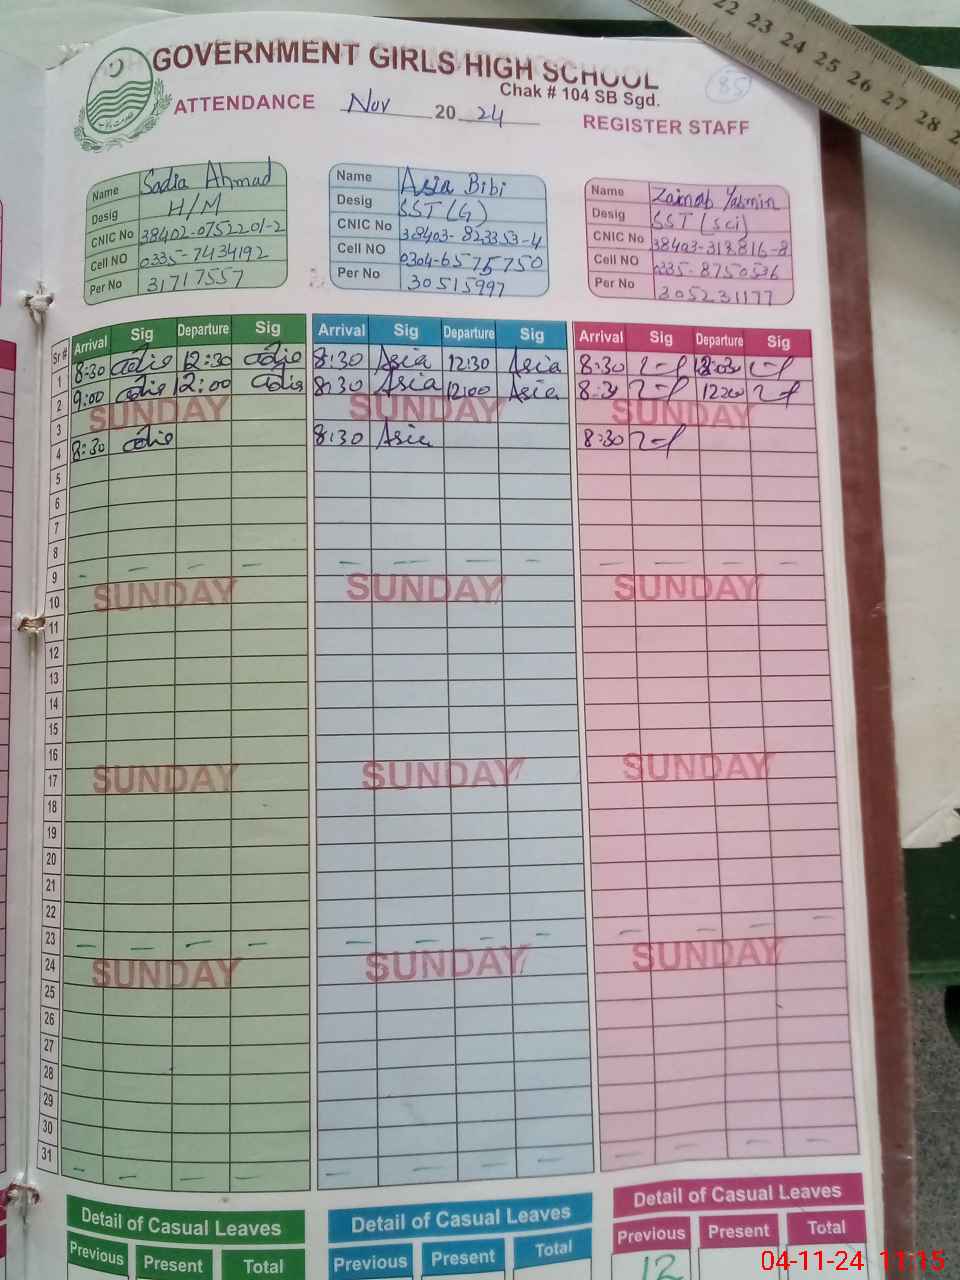 GOVERNMENT GIRLS HIGH SCHOOL
Chak # 104 SB Sgd.
85
ATTENDANCE Nov 2024 REGISTER STAFF
Name Sadia Ahmad
Desig H/M
CNIC No 38402-0752201-2
Cell NO 0335-7434192
Per No 31717557
Name Asia Bibi
Desig SST(G)
CNIC No 38403-823353-4
Cell NO 0304-6575750
Per No 30515997
Name Zainab Yasmin
Desig SST(sci)
CNIC No 38403-318816-8
Cell NO 0335-8750536
Per No 305231177
Sr # Arrival Sig Departure Sig Arrival Sig Departure Sig Arrival Sig Departure Sig
1 8:30 12:30 8:30 Asia 12:30 Asia 8:30
2 9:00 12:00 8:30 Asia 12:00 Asia 8:30 1200
3 SUNDAY SUNDAY SUNDAY
4 8:30 8:30 Asia 8:30
5
6
7
8
9
10 SUNDAY SUNDAY SUNDAY
11
12
13
14
15
16
17 SUNDAY SUNDAY SUNDAY
18
19
20
21
22
23
24 SUNDAY SUNDAY SUNDAY
25
26
27
28
29
30
31
Detail of Casual Leaves Detail of Casual Leaves Detail of Casual Leaves
Previous Present Total Previous Present Total Previous Present Total
12
22 23 24 25 26 27 28
04-11-24 11:15